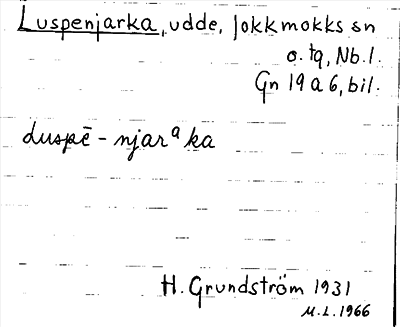 Luspenjarka, udde, Jokkmokks sn
o. tq, Nb. l.
Gn 19 a 6, bil.
luspē - njarᵃka
H. Grundström 1931
M.L. 1966